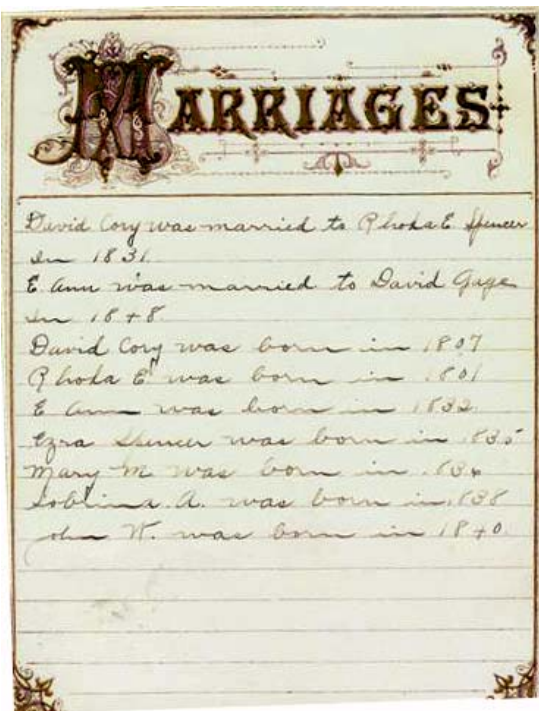 MARRIAGES
David Cory was married to Rhoda E Spencer
In 1831
E Ann was married to David Gage
In 1848
David Cory was born in 1807
Rhoda E " was born in 1801
E Ann was born in 1832
Ezra Spencer was born in 1835
Mary M. was born in 1836
A. was born in 1838
John W. was born in 1840.